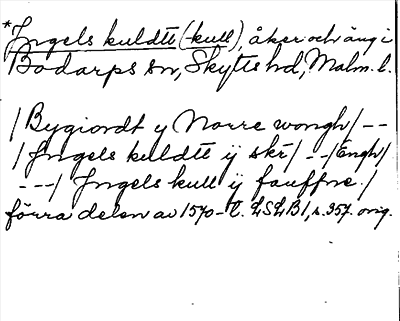 *Jngels kuldtt (-kull), åker och äng i
Bodarps sn, Skytts hd, Malm. l.
/Bygiordt y Norre wongh/--
/Jngels kuldtt ij skr/--/Engh/
---/Jngels kull ij fauffne./
förra delen av 1570-t. LSLB1, s. 357. orig.